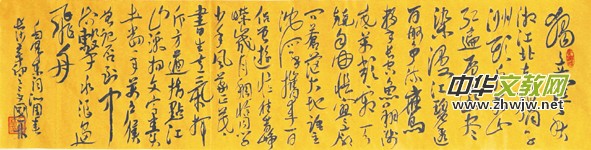 独立寒秋
湘江北去橘子
洲头看万山
红遍层林尽
染漫江碧透
百舸争流鹰击
长空鱼翔浅
底万类霜天
竞自由怅寥廓
问苍茫大地谁主
沉浮携来百
侣曾游忆往昔峥
嵘岁月稠恰同学
少年风华正茂
书生意气挥
斥方遒指点江
山激扬文字粪
土当年万户侯
曾记否到中
流击水浪遏
飞舟
毛泽东词沁园春
长沙
中华文教网
www.zhwjw.net